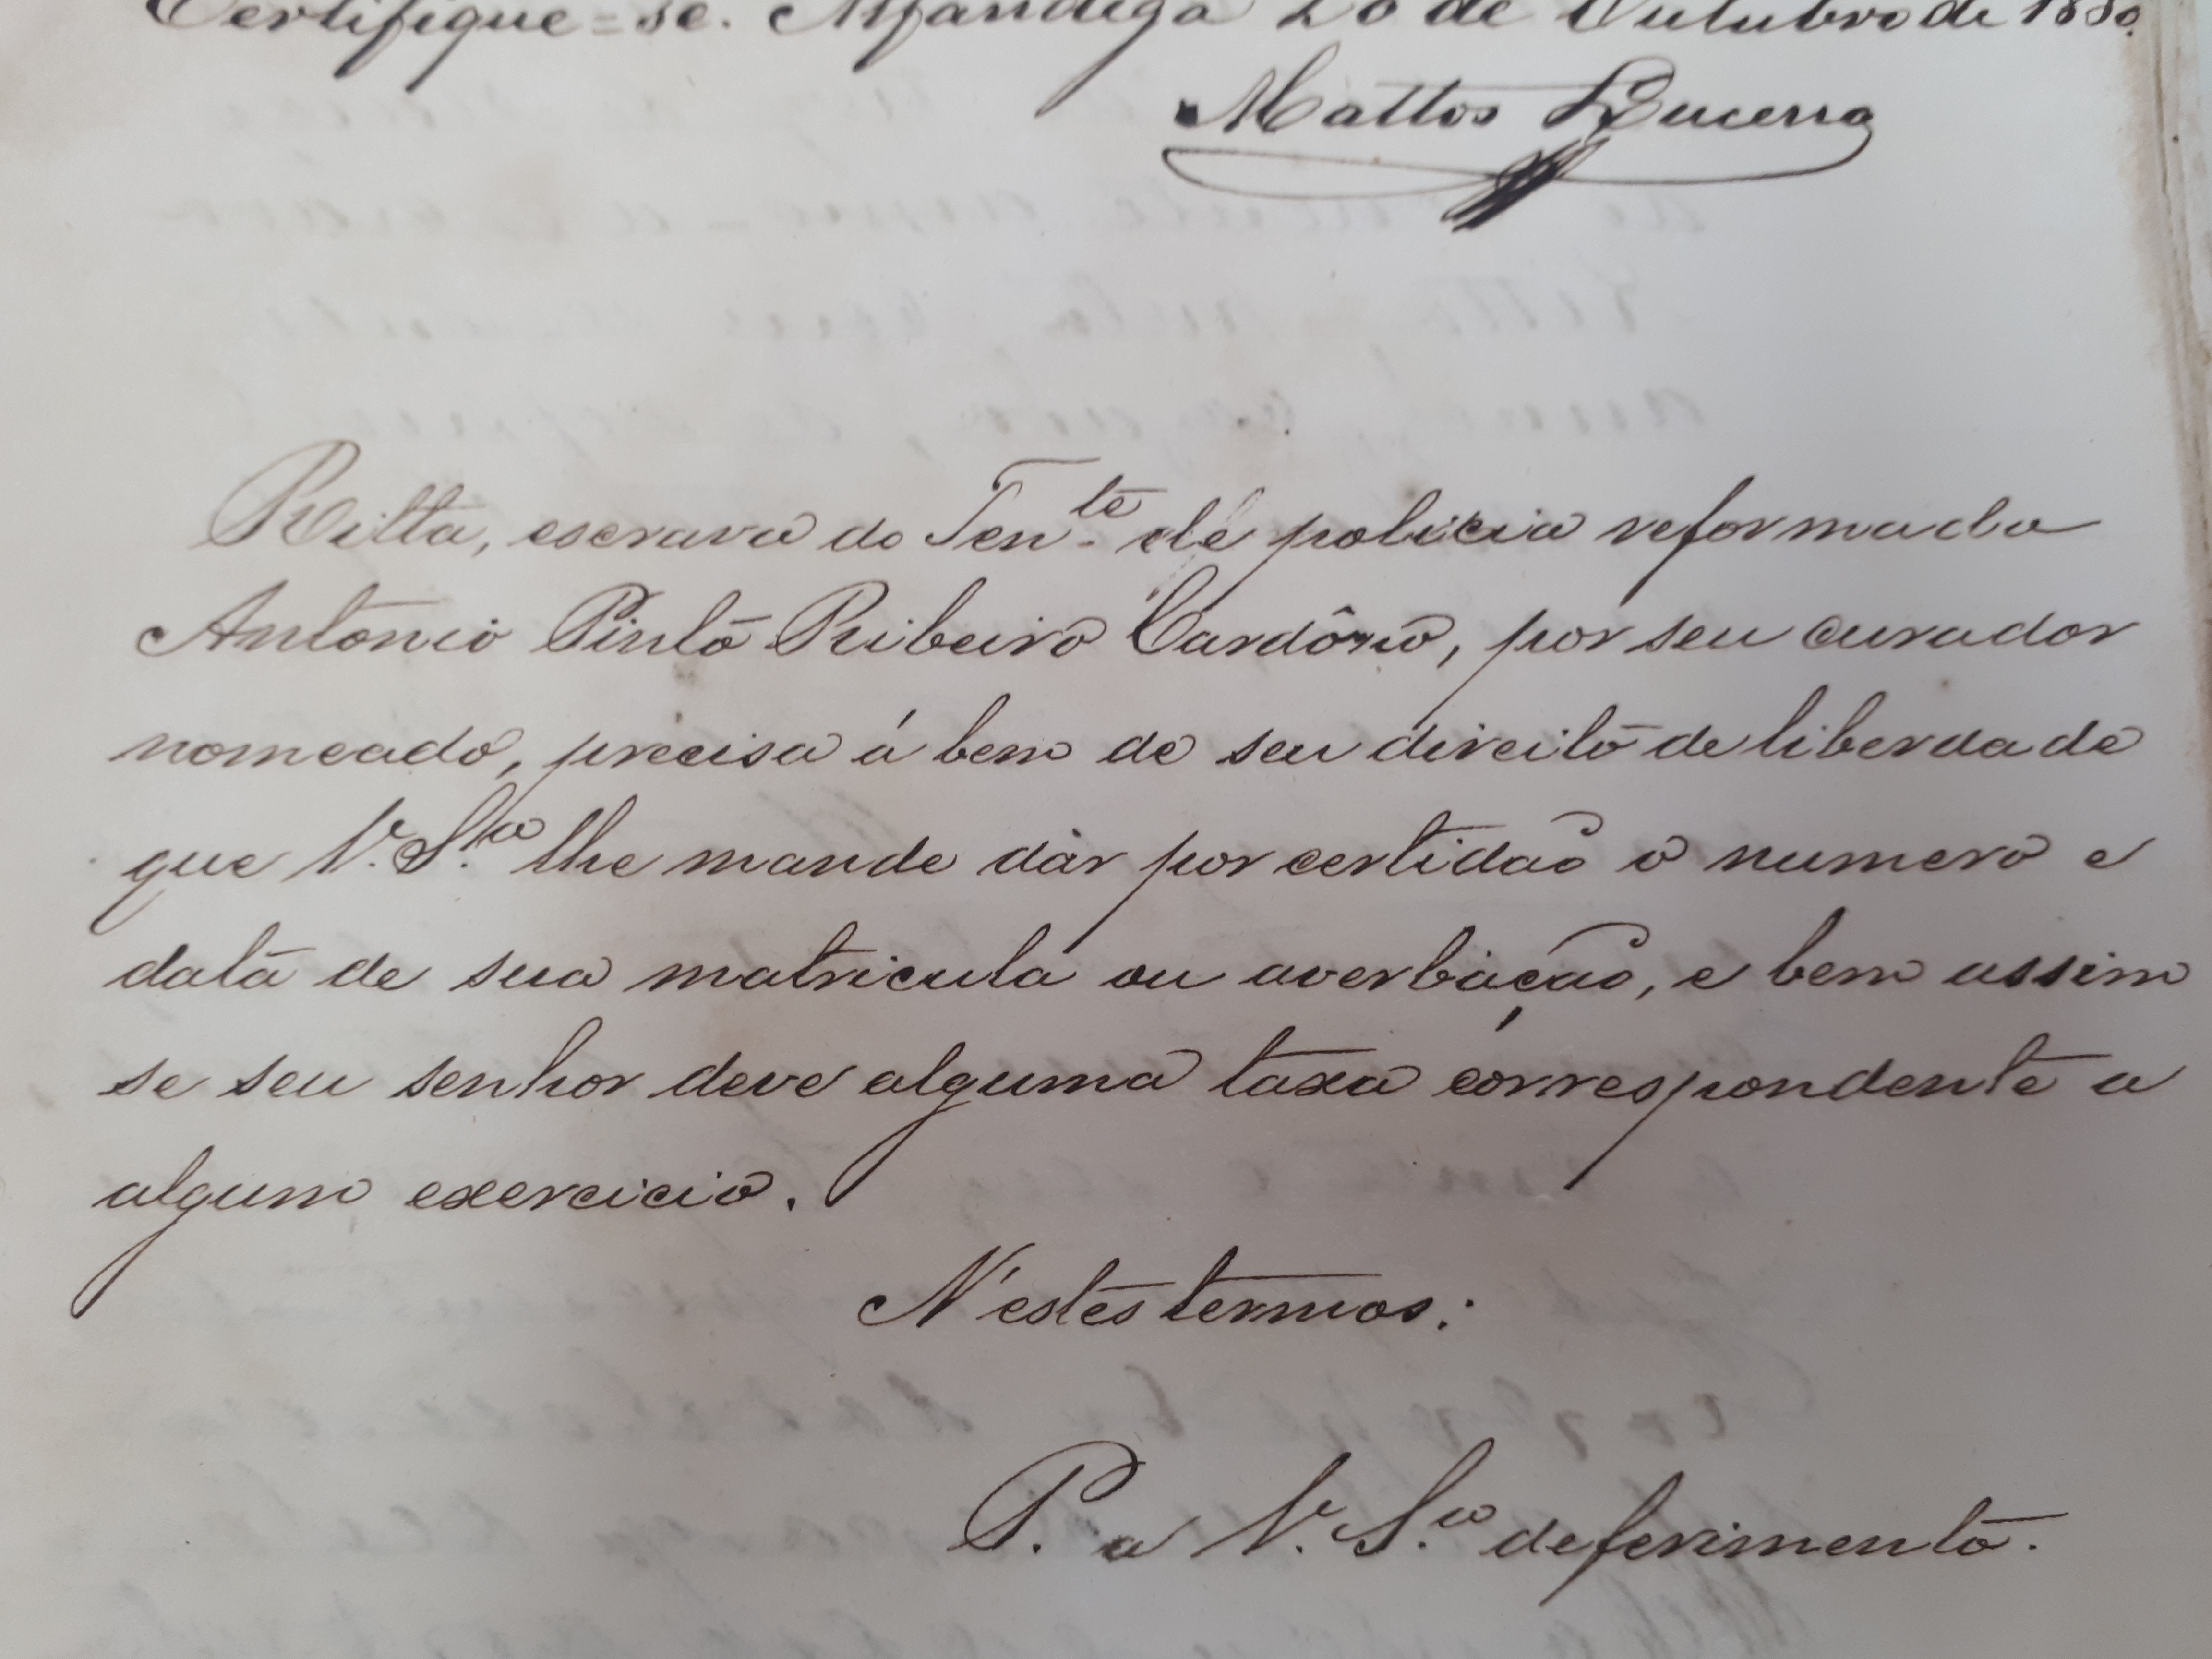 Certifique=se. Alfandega 20 de Outubro de 1880.
Mattos Bucerra
Ritta, escrava do Ten.te de policia reformado
Antonio Pinto Ribeiro Cardôzo, por seu curador
nomeado, precisa á bem de seu direito de liberdade
que V. S.ia lhe mande dar por certidaõ o numero e
data de sua matricula ou averbaçaõ, e bem assim
se seu senhor deve alguma taxa correspondente a
algum exercicio.
N'estes termos:
P. a V. S.ia deferimento.